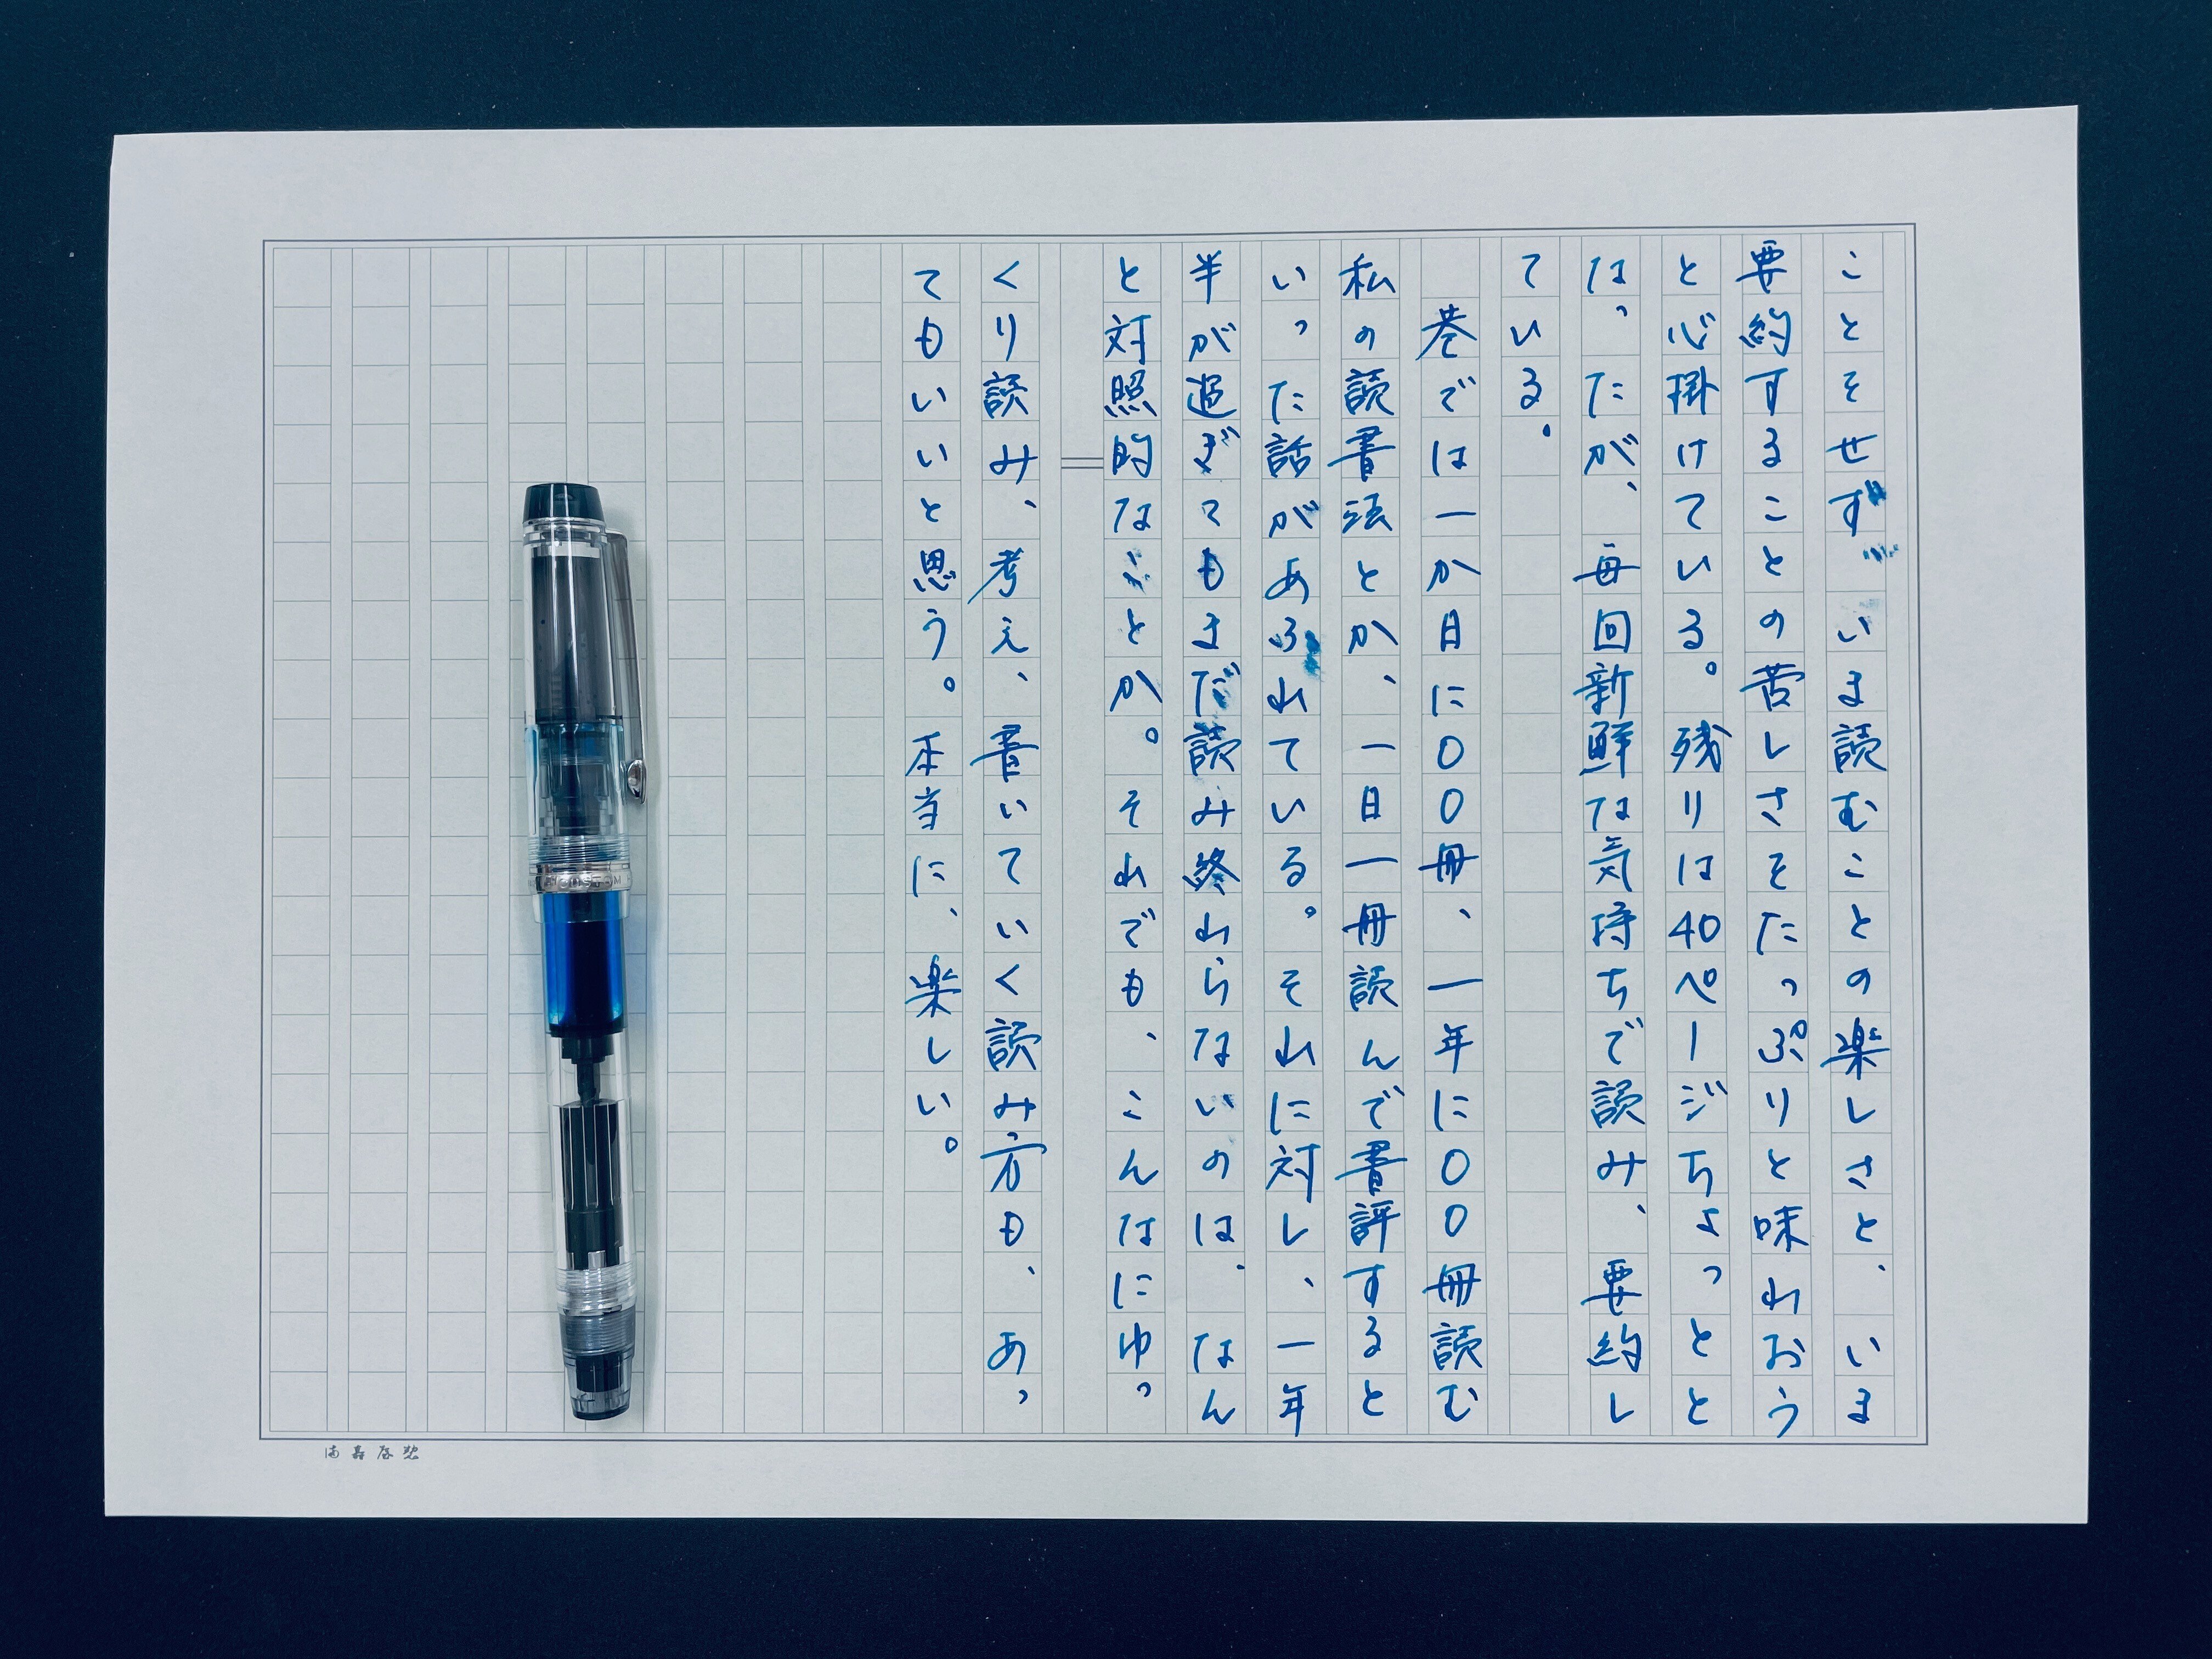 ことをせず いま読むことの楽しさと、いま
要約することの苦しさをたっぷりと味わおう
と心掛けている。残りは40ページちょっとと
なったが、毎回新鮮な気持ちで読み、要約し
ている。
　巷では一か月に〇〇冊、一年に〇〇冊読む
私の読書法とか、一日一冊読んで書評すると
いった話があふれている。それに対し、一年
半が過ぎてもまだ読み終わらないのは、なん
と対照的なことか。それでも、こんなにゆっ
くり読み、考え、書いていく読み方も、あっ
てもいいと思う。本当に、楽しい。
CUSTOM